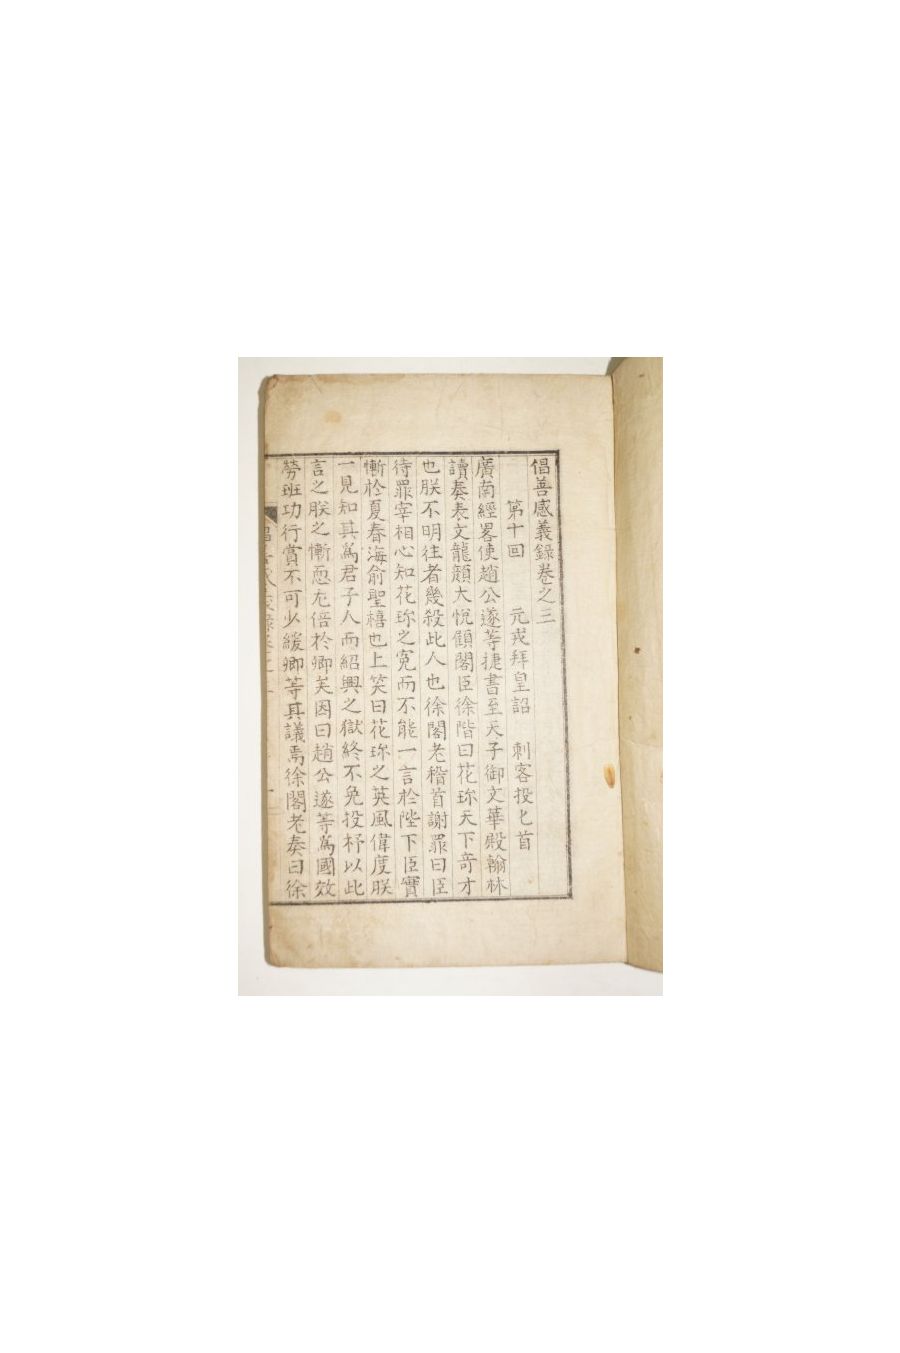 倡善感義錄卷之三
第十回 元戎拜皇詔 刺客投匕首
廣南經畧使趙公遂等捷書至天子御文華殿翰林
讀奏表文龍顔大悅顧閣臣徐階曰花珎天下竒才
也朕不明徃者幾殺此人也徐閣老稽首謝罪曰臣
待罪宰相心知花珎之寃而不能一言於陛下臣實
慚於夏春海俞聖禧也上笑曰花珎之英風偉度朕
一見知其爲君子人而紹興之獄終不免投杼以此
言之朕之慚恧尤倍於卿矣因曰趙公遂等爲國效
勞班功行賞不可少緩卿等其議焉徐閣老奏曰徐